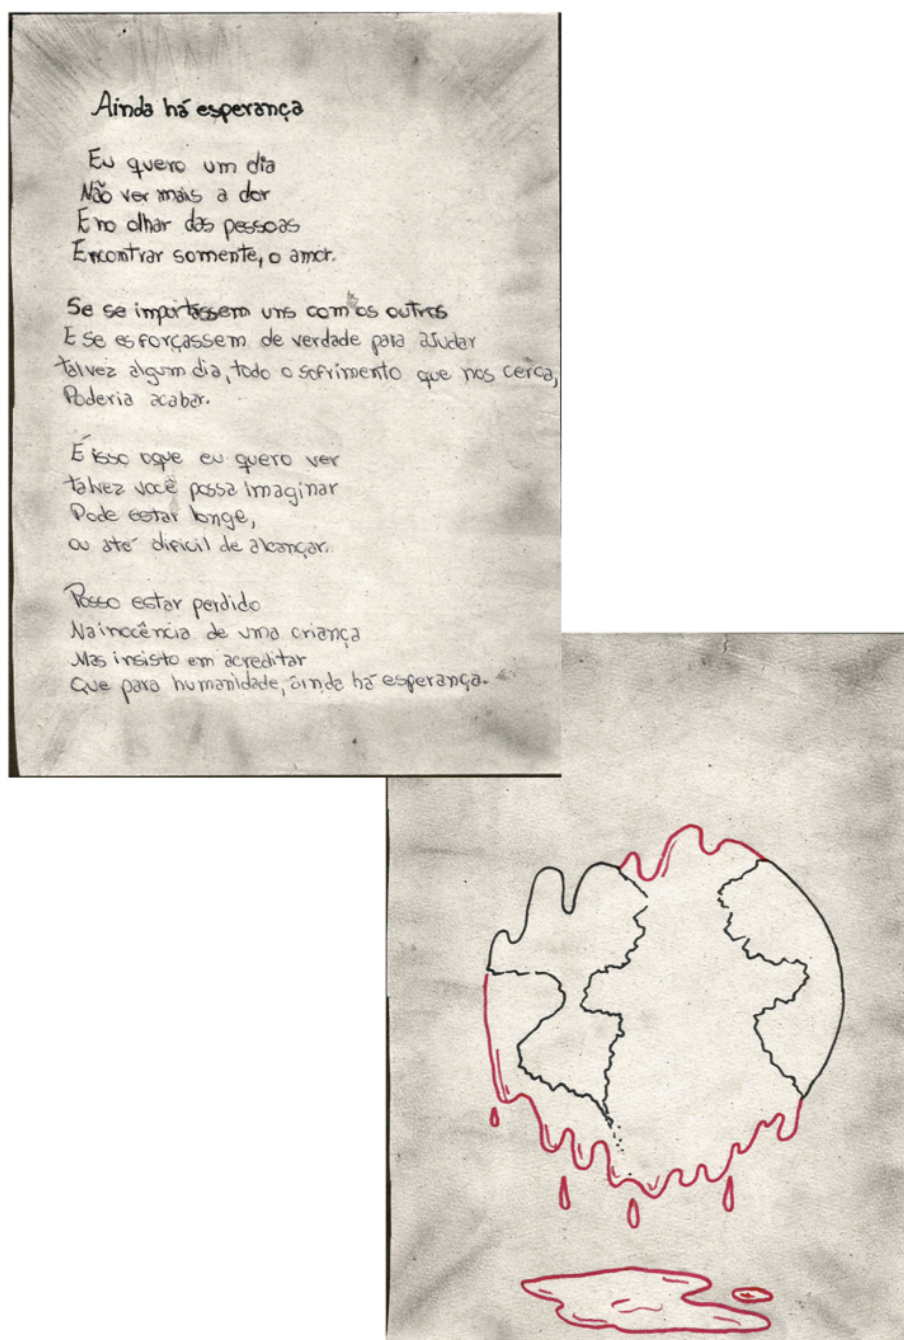 Ainda há esperança
Eu quero um dia
Não ver mais a dor
E no olhar das pessoas
Encontrar somente, o amor.
Se se importassem uns com os outros
E se esforçassem de verdade para ajudar
talvez algum dia, todo o sofrimento que nos cerca,
Poderia acabar.
É isso oque eu quero ver
talvez você possa imaginar
Pode estar longe,
ou até dificil de alcançar.
Posso estar perdido
Na inocência de uma criança
Mas insisto em acreditar
Que para humanidade, ainda há esperança.